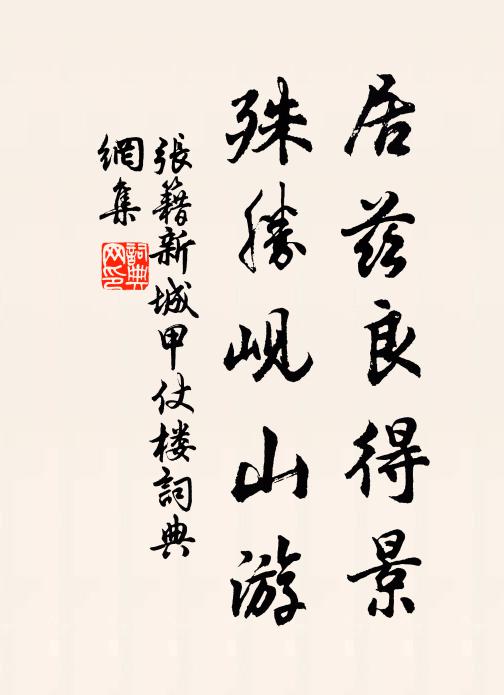 居茲良得景
殊勝峴山游
張籍新城甲仗楼詞典
網集
詞典
网印